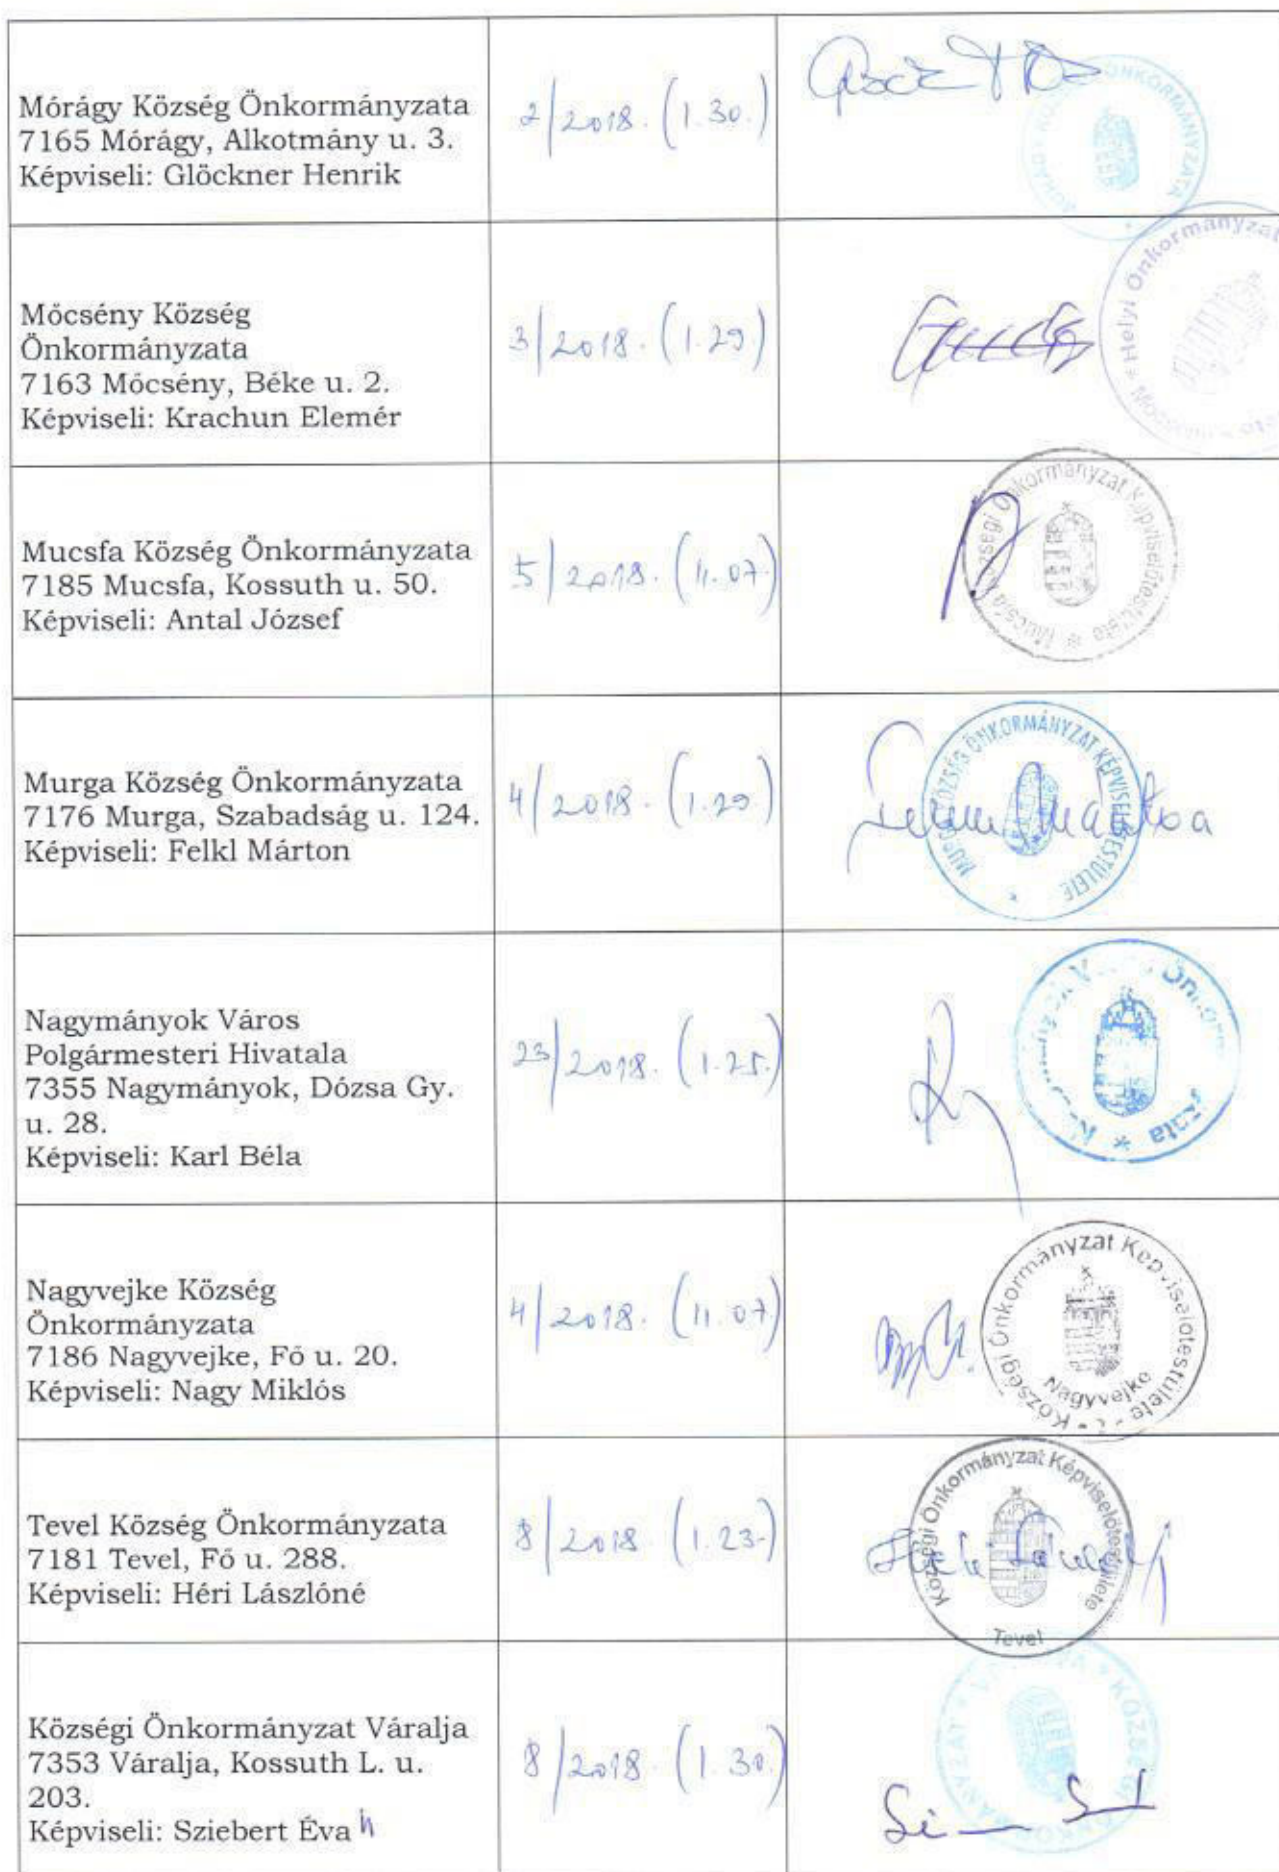 Mórágy Község Önkormányzata
7165 Mórágy, Alkotmány u. 3.
Képviseli: Glöckner Henrik
2/2018. (1.30.)
ÖNKORMÁNYZATA
Mőcsény Község
Önkormányzata
7163 Mőcsény, Béke u. 2.
Képviseli: Krachun Elemér
3/2018. (1.29)
Helyi Önkormányzat
Mucsfa Község Önkormányzata
7185 Mucsfa, Kossuth u. 50.
Képviseli: Antal József
5/2018. (11.07.)
Önkormányzat Képviselőtestülete * Mucsfa
Murga Község Önkormányzata
7176 Murga, Szabadság u. 124.
Képviseli: Felkl Márton
4/2018. (1.29.)
KÖZSÉG ÖNKORMÁNYZAT KÉPVISELŐTESTÜLETE
Nagymányok Város
Polgármesteri Hivatala
7355 Nagymányok, Dózsa Gy.
u. 28.
Képviseli: Karl Béla
23/2018. (1.25.)
Nagyvejke Község
Önkormányzata
7186 Nagyvejke, Fő u. 20.
Képviseli: Nagy Miklós
4/2018. (11.07)
Községi Önkormányzat Képviselőtestülete
Nagyvejke
Tevel Község Önkormányzata
7181 Tevel, Fő u. 288.
Képviseli: Héri Lászlóné
8/2018 (1.23.)
Községi Önkormányzat Képviselőtestülete
Tevel
Községi Önkormányzat Váralja
7353 Váralja, Kossuth L. u.
203.
Képviseli: Sziebert Éva
8/2018. (1.30.)